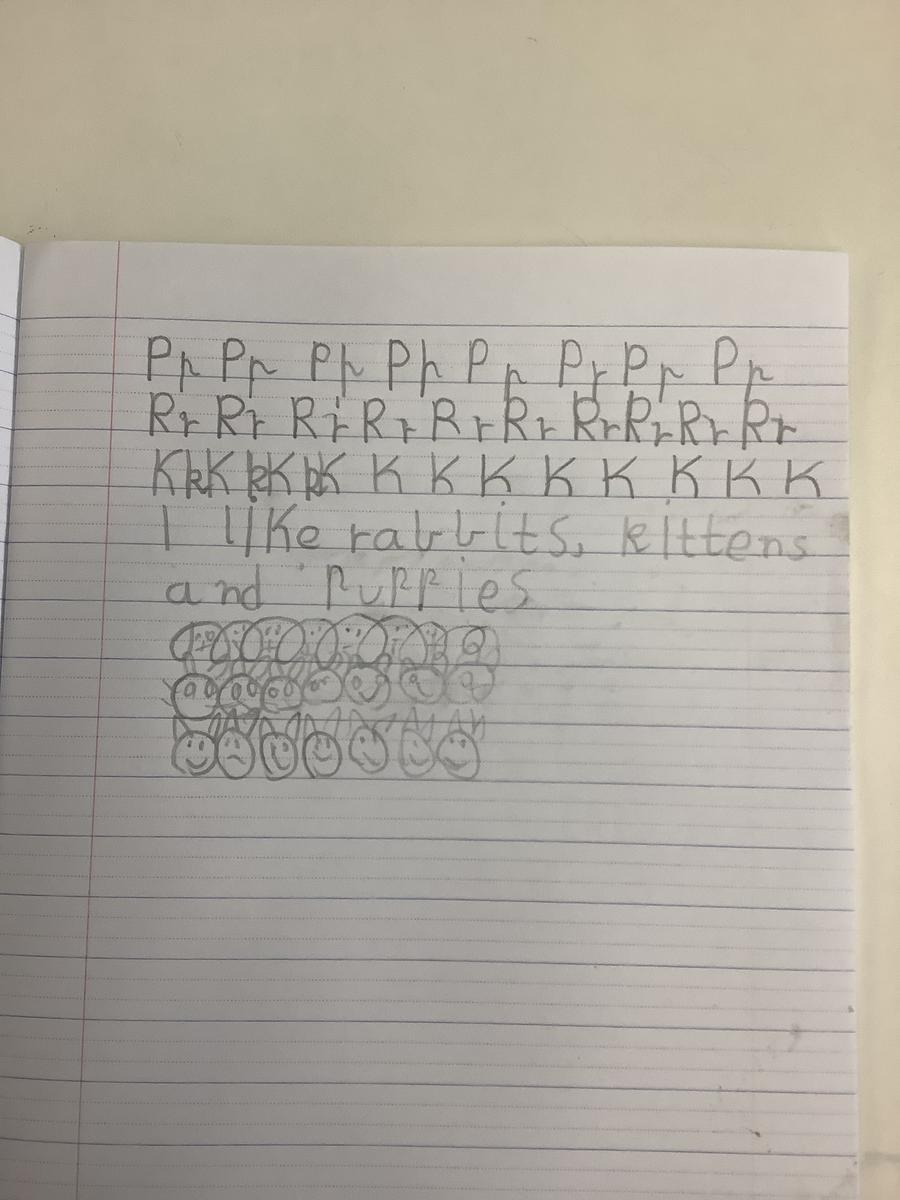 Pp Pp Pp Pp Pp Pp Pp Pp
Rr Rr Rr Rr Rr Rr Rr Rr Rr Rr
KkK kK kK K K K K K K K K
I like rabbits, kittens
and puppies